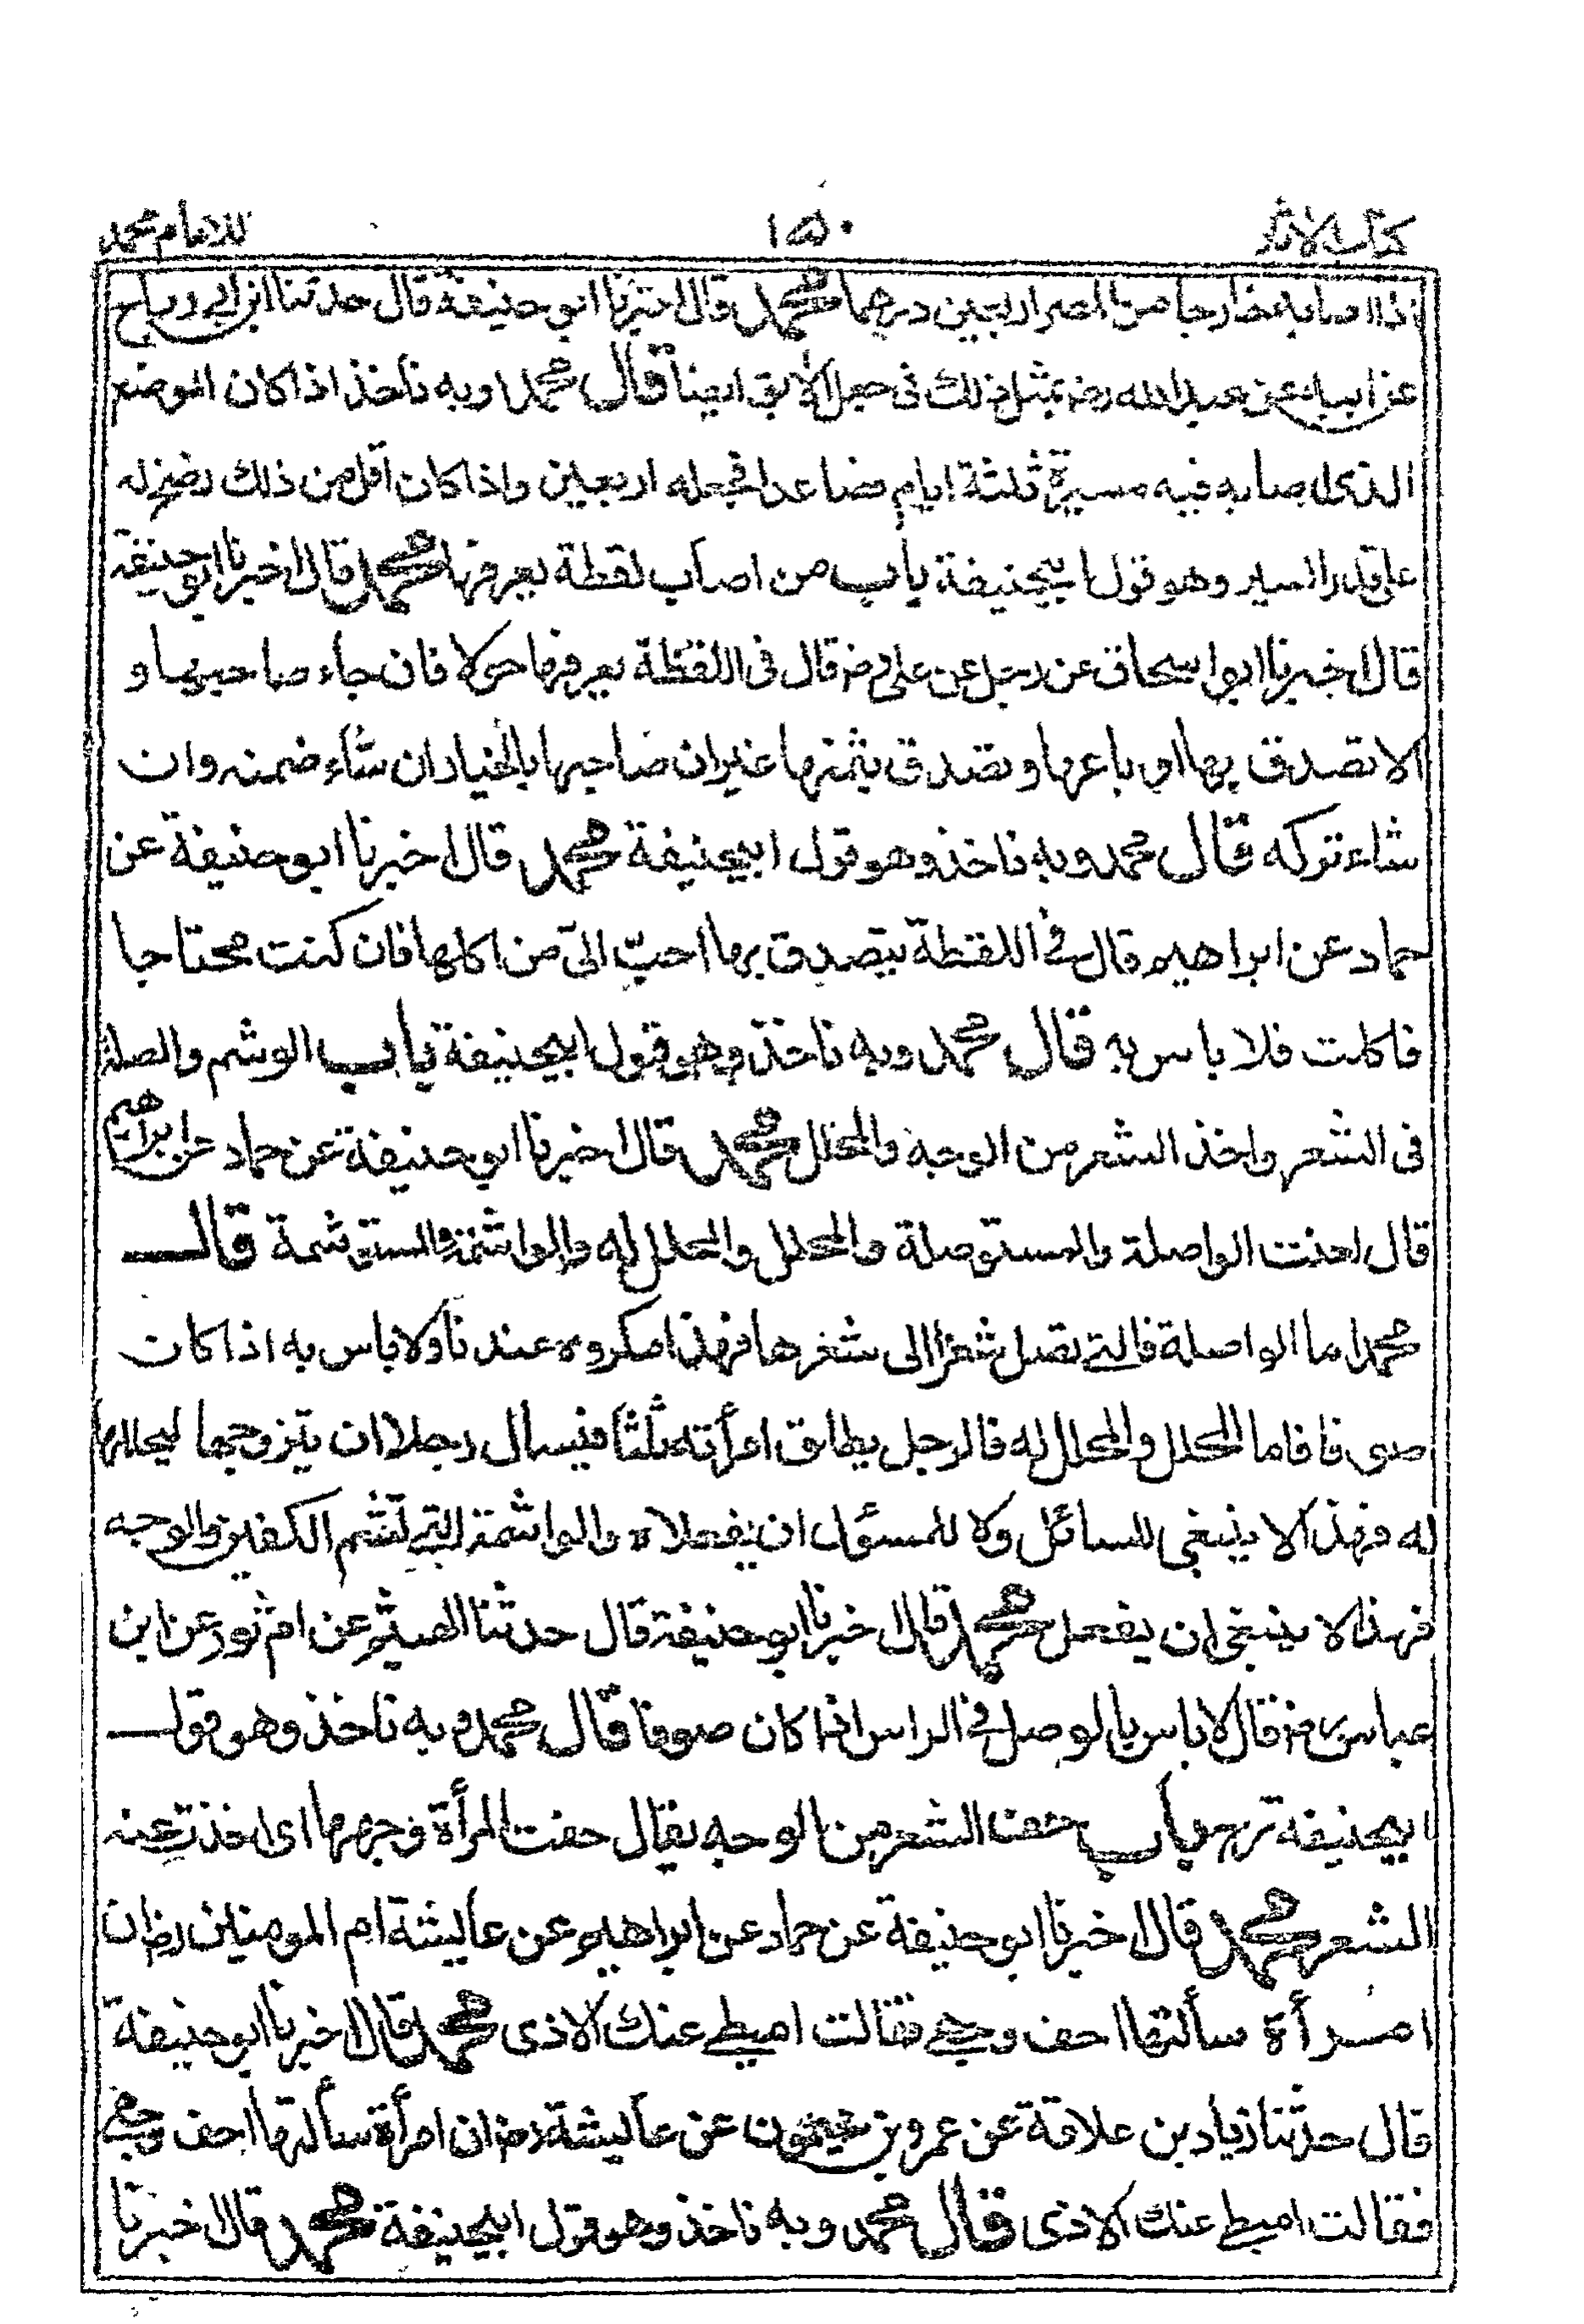 كتاب الآثار ١٥٠ للامام محمد
اذا اصابه خارجا من المصر اربعين درهما محمد قال اخبرنا ابو حنيفة قال حدثنا ابن ابي رباح
عن ابيه عن عبد الله رضـ بمثل ذلك فى جعل الآبق ايضا قال محمد وبه ناخذ اذا كان الموضع
الذى اصابه فيه مسيرة ثلثة ايام فصاعدا فجعله اربعين واذا كان اقل من ذلك رضخ له
على قدر المسير وهو قول ابيحنيفة باب من اصاب لقطة يعرفها محمد قال اخبرنا ابو حنيفة
قال اخبرنا ابو اسحاق عن رجل عن على رضـ قال فى اللقطة يعرفها حولا فان جاء صاحبها و
الا تصدق بها او باعها وتصدق بثمنها غير ان صاحبها بالخيار ان شاء ضمنه وان
شاء تركه قال محمد وبه ناخذ وهو قول ابيحنيفة محمد قال اخبرنا ابو حنيفة عن
حماد عن ابراهيم قال فى اللقطة يتصدق بها احبّ الىّ من اكلها فان كنت محتاجا
فاكلت فلا باس به قال محمد وبه ناخذ وهو قول ابيحنيفة باب الوشم والصلة
فى الشعر واخذ الشعر من الوجه والمحلل محمد قال اخبرنا ابو حنيفة عن حماد عن ابراهيم
قال لعنت الواصلة والمستوصلة والمحلل والمحلل له والواشمة والمستوشمة قال
محمد اما الواصلة فالتى تصل شعرا الى شعرها فهذا مكروه عندنا ولا باس به اذا كان
صوفا فاما المحلل والمحلل له فالرجل يطلق امرأته ثلثا فيسال رجلا ان يتزوجها ليحللها
له فهذا لا ينبغى للسائل ولا للمسؤل ان يفعلاه والواشمة التى تشم الكفين والوجه
فهذا لا ينبغى ان يفعل محمد قال اخبرنا ابو حنيفة قال حدثنا الهيثم عن ام ثور عن ابن
عباس رضـ قال لا باس بالوصل فى الراس اذا كان صوفا قال محمد وبه ناخذ وهو قول
ابيحنيفة باب حف الشعر من الوجه يقال حفت المرأة وجهها اى اخذت عنه
الشعر محمد قال اخبرنا ابو حنيفة عن حماد عن ابراهيم عن عايشة ام المومنين رضـ ان
امرأة سألتها احف وجهى فقالت اميطى عنك الاذى محمد قال اخبرنا ابو حنيفة
قال حدثنا زياد بن علاقة عن عمرو بن ميمون عن عايشة رضـ ان امرأة سألتها احف وجهى
فقالت اميطى عنك الاذى قال محمد وبه ناخذ وهو قول ابيحنيفة محمد قال اخبرنا